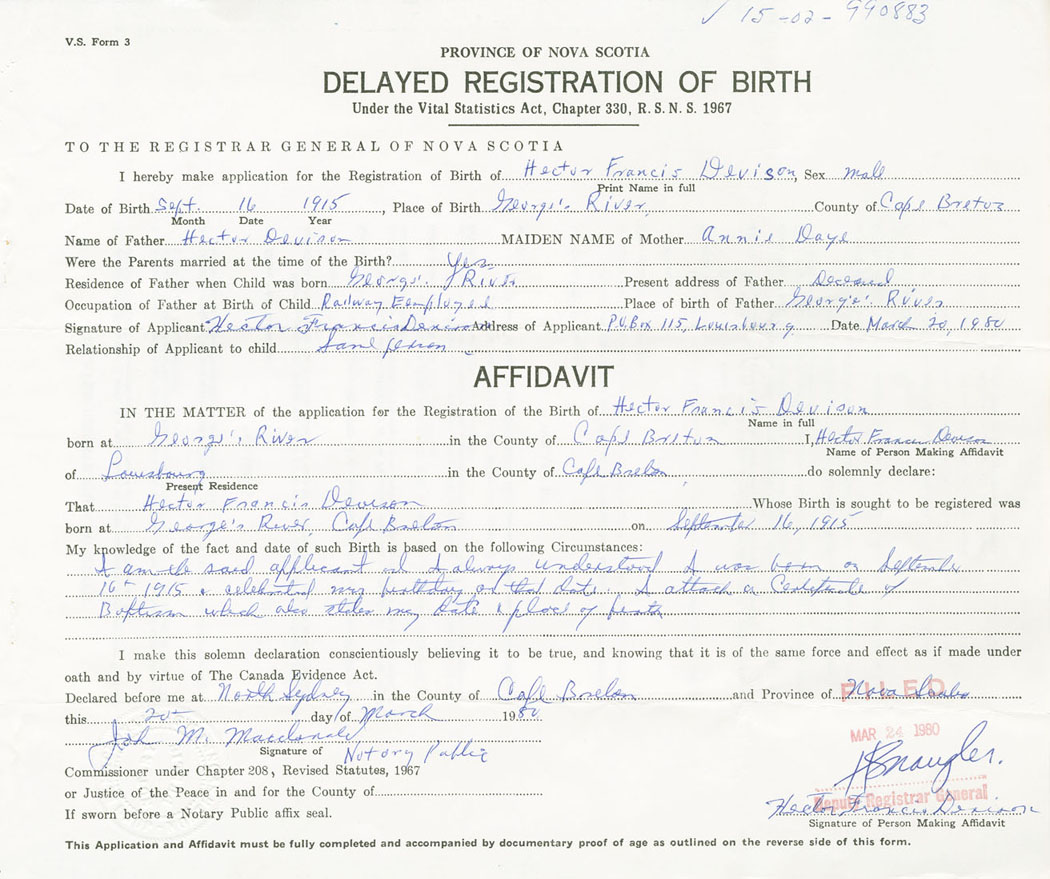 ✓ 15-02-990883
V.S. Form 3
PROVINCE OF NOVA SCOTIA
DELAYED REGISTRATION OF BIRTH
Under the Vital Statistics Act, Chapter 330, R.S.N.S. 1967
TO THE REGISTRAR GENERAL OF NOVA SCOTIA
I hereby make application for the Registration of Birth of Hector Francis Devison, Sex male
Print Name in full
Date of Birth Sept. 16 1915, Place of Birth George's River, County of Cape Breton
Month Date Year
Name of Father Hector Devison MAIDEN NAME of Mother Annie Daye
Were the Parents married at the time of the Birth? Yes
Residence of Father when Child was born George's River Present address of Father Deceased
Occupation of Father at Birth of Child Railway Employed Place of birth of Father George's River
Signature of Applicant Hector Francis Devison Address of Applicant P.O. Box 115, Louisbourg Date March 20, 1980
Relationship of Applicant to child Same person
AFFIDAVIT
IN THE MATTER of the application for the Registration of the Birth of Hector Francis Devison
Name in full
born at George's River in the County of Cape Breton I, Hector Francis Devison
Name of Person Making Affidavit
of Louisbourg in the County of Cape Breton do solemnly declare:
Present Residence
That Hector Francis Devison Whose Birth is sought to be registered was
born at George's River, Cape Breton on September 16, 1915
My knowledge of the fact and date of such Birth is based on the following Circumstances:
I am the said applicant and I always understood I was born on September
16th 1915 & celebrated my birthday on that date. I attach a Certificate of
Baptism which also states my date & place of birth
I make this solemn declaration conscientiously believing it to be true, and knowing that it is of the same force and effect as if made under
oath and by virtue of The Canada Evidence Act.
Declared before me at North Sydney in the County of Cape Breton and Province of Nova Scotia
FILED
this 20th day of March 1980
MAR 24 1980
John M. Macdonald
Signature of Notary Public
Commissioner under Chapter 208, Revised Statutes, 1967
or Justice of the Peace in and for the County of
Deputy Registrar General
Hector Francis Devison
If sworn before a Notary Public affix seal.
Signature of Person Making Affidavit
This Application and Affidavit must be fully completed and accompanied by documentary proof of age as outlined on the reverse side of this form.